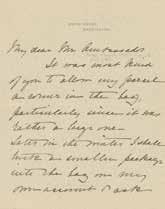 My dear Mr. Ambassador.
It was most kind
of you to allow my parcel
a corner in the bag,
particularly since it was
rather a large one.
Later in the winter I shall
with a smaller package
into the bag on my
own account & ask